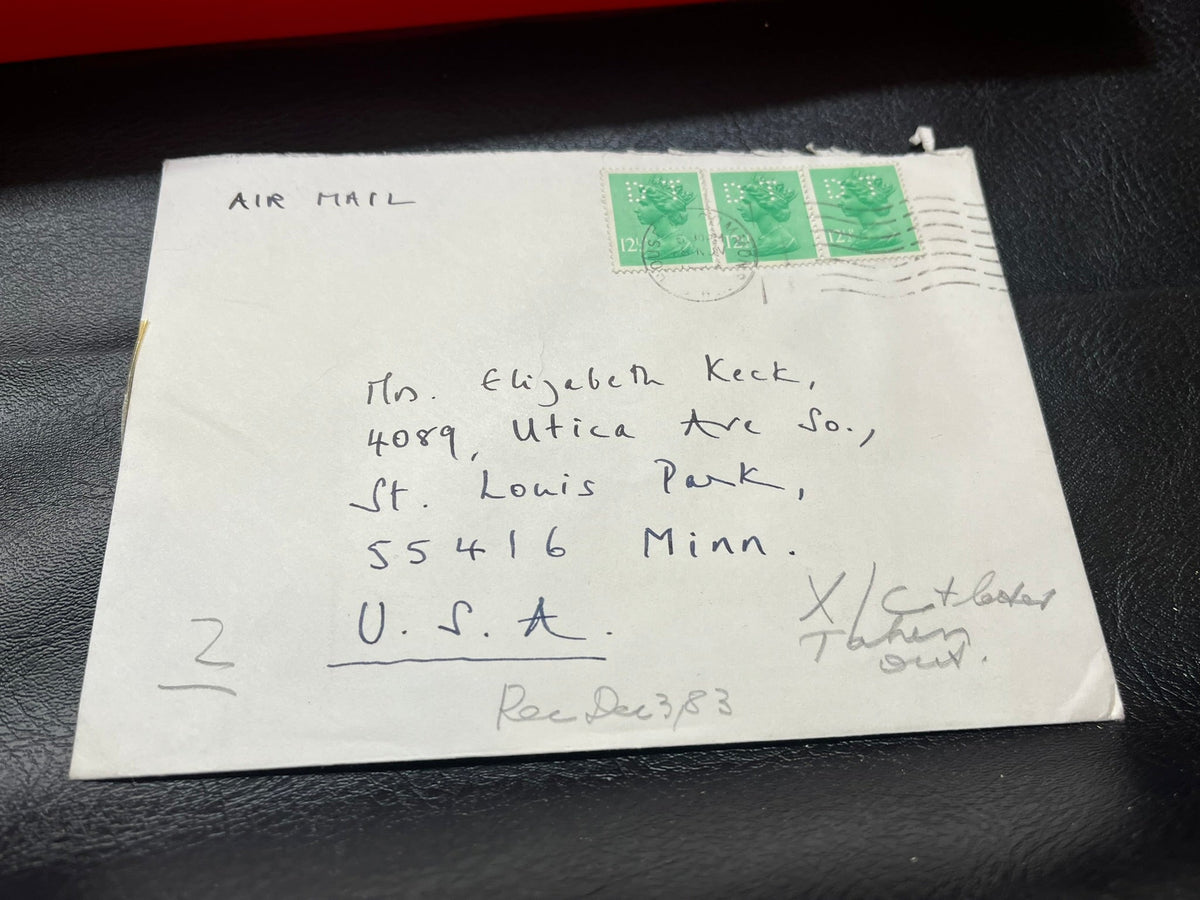 AIR MAIL
12½
12½
12½
Mrs. Elizabeth Keck,
4089, Utica Ave So.,
St. Louis Park,
55416 Minn.
U.S.A.
X/C + letter
Taken
out.
2
Rec Dec 3/83